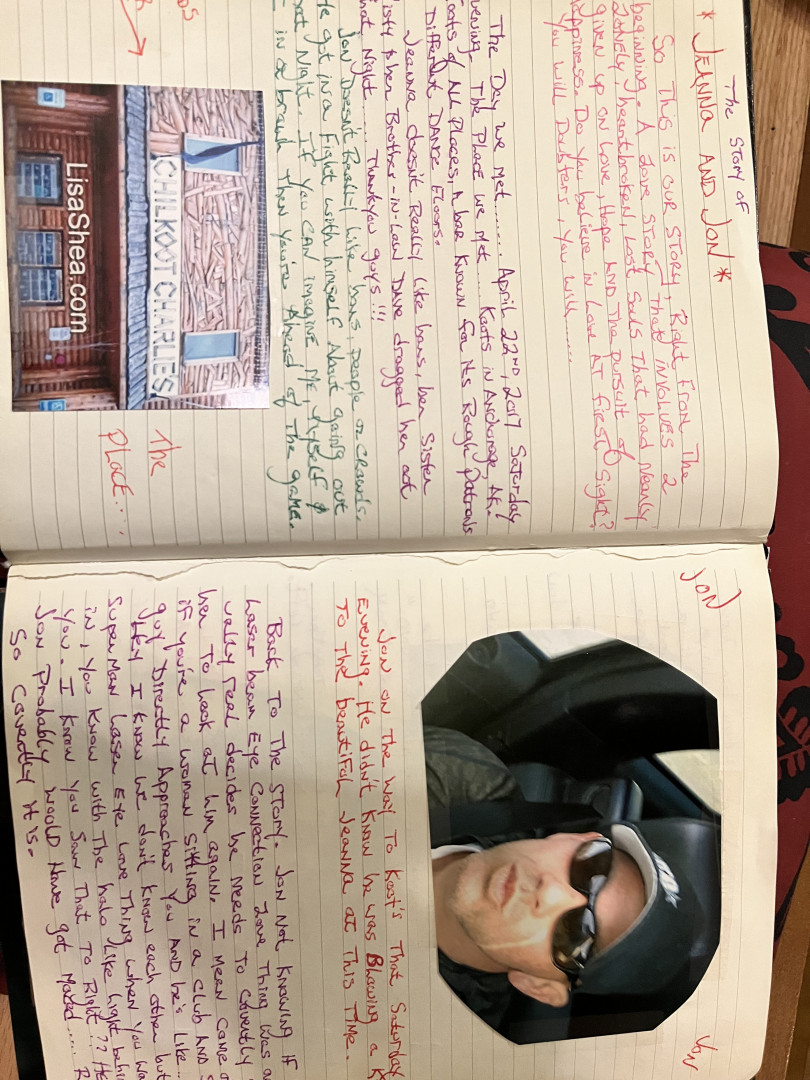 The STORY OF
* JEANNA AND JON *
So This is OUR STORY, Right From The
beginning. A Love STORY That INVOLVES 2
Lonely, heartbroken, Lost Souls That had Nearly
given up on Love, Hope AND The pursuit of
Happiness. Do You believe in Love AT first Sight?
You will Doubters, You will......
The Day we Met....... April 22ND, 2017 Saturday
evening. The Place we Met.... Koots in Anchorage AK.!
Koots of ALL Places, A bar Known for its Rough Patrons
Different DANCE Floors.
Jeanna doesn't Really like bars, her Sister
isty & her Brother-in-Law Dave dragged her out
hat Night...... Thankyou guys!!!
Jon Doesn't Really Like bars, people or Crowds.
He got in a Fight with himself About going out
hat Night. If You CAN imagine Me, Myself &
I in a brawl Then You're Ahead of The game.
CHILKOOT CHARLIE'S
LisaShea.com
The
Place....
JON
JON
JON on The Way To Koot's That Saturday
Evening. He didn't Know he was Blowing a K
To The beautiful Jeanna at This Time.
Back To The STORY. Jon Not Knowing if
Laser beam Eye Connection Love Thing was a
ually real decides he Needs To Covertly
her To Look at him again. I Mean Come o
if you're a woman Sitting in a Club AND S
guy Directly Approaches You AND he's like..
Hey I Know we don't Know each other but
SuperMan Laser Eye Love Thing when You wa
in, You Know with The halo like light behi
You. I Know You Saw That To Right?? He
Jon Probably would have got Maced..... R
So Covertly it is.